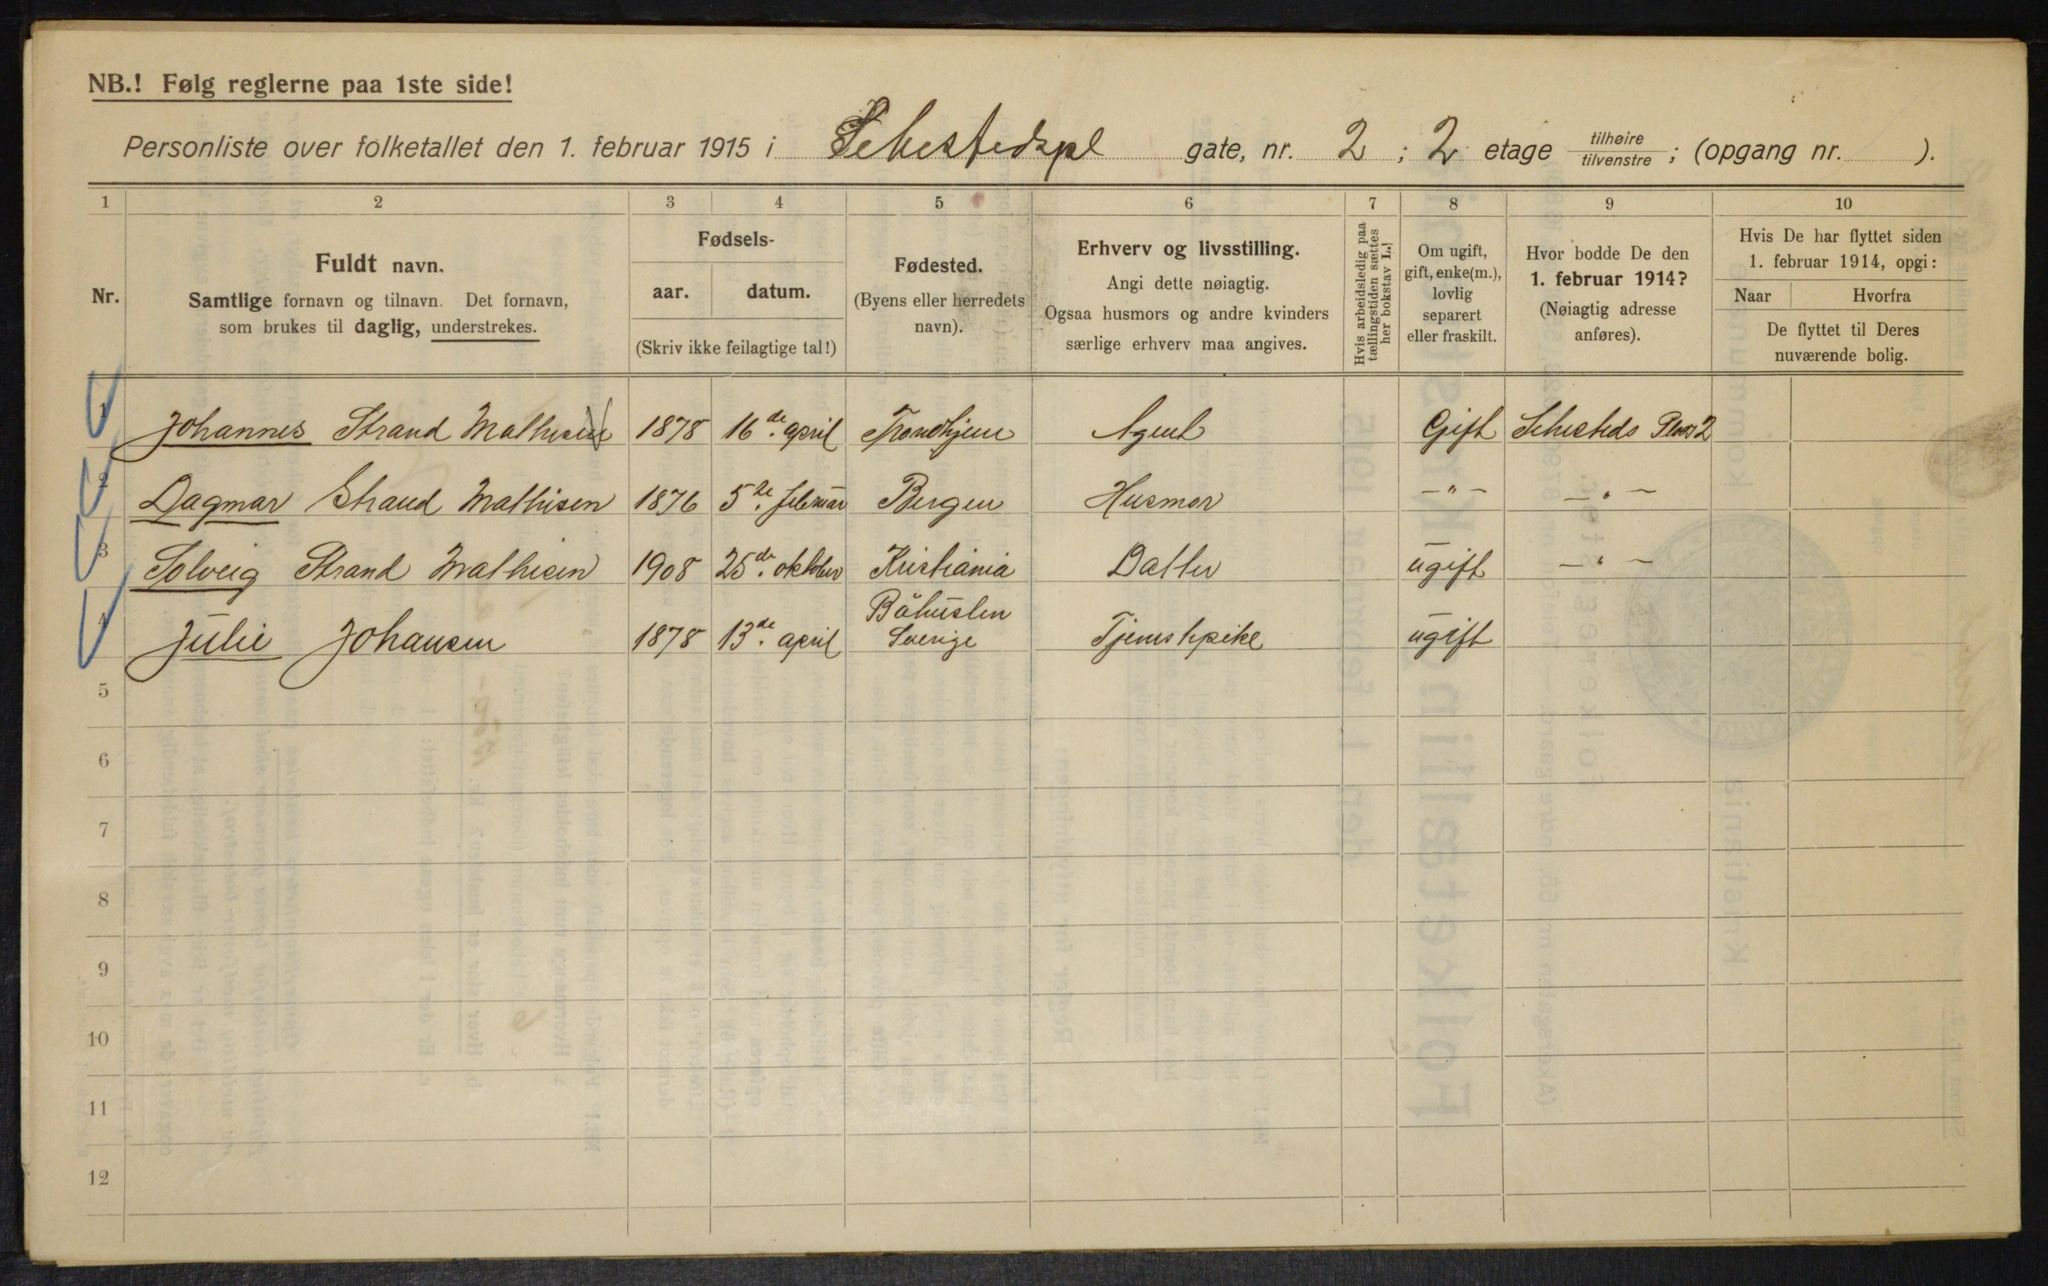 NB.! Følg reglerne paa 1ste side!
Personliste over folketallet den 1. februar 1915 i Sehestedspl gate, nr. 2 ; 2 etage tilhøire tilvenstre ; (opgang nr. ).
1 2 3 4 5 6 7 8 9 10
Nr.
Fuldt navn.
Samtlige fornavn og tilnavn. Det fornavn,
som brukes til daglig, understrekes.
Fødsels-
aar. datum.
(Skriv ikke feilagtige tal!)
Fødested.
(Byens eller herredets
navn).
Erhverv og livsstilling.
Angi dette nøiagtig.
Ogsaa husmors og andre kvinders
særlige erhverv maa angives.
Hvis arbeidsledig paa
tællingstiden sættes
her bokstav L.!
Om ugift,
gift, enke(m.),
lovlig
separert
eller fraskilt.
Hvor bodde De den
1. februar 1914?
(Nøiagtig adresse
anføres).
Hvis De har flyttet siden
1. februar 1914, opgi:
Naar Hvorfra
De flyttet til Deres
nuværende bolig.
1 Johannes Strand Mathisen 1878 16de april Trondhjem Agent Gift Sehesteds Plass 2
2 Dagmar Strand Mathisen 1876 5te februar Bergen Husmor — " — — " —
3 Solveig Strand Mathisen 1908 25de oktober Kristiania Datter ugift — " —
4 Julie Johansen 1878 13de april Båhuslen Sverige Tjenestepike ugift
5
6
7
8
9
10
11
12